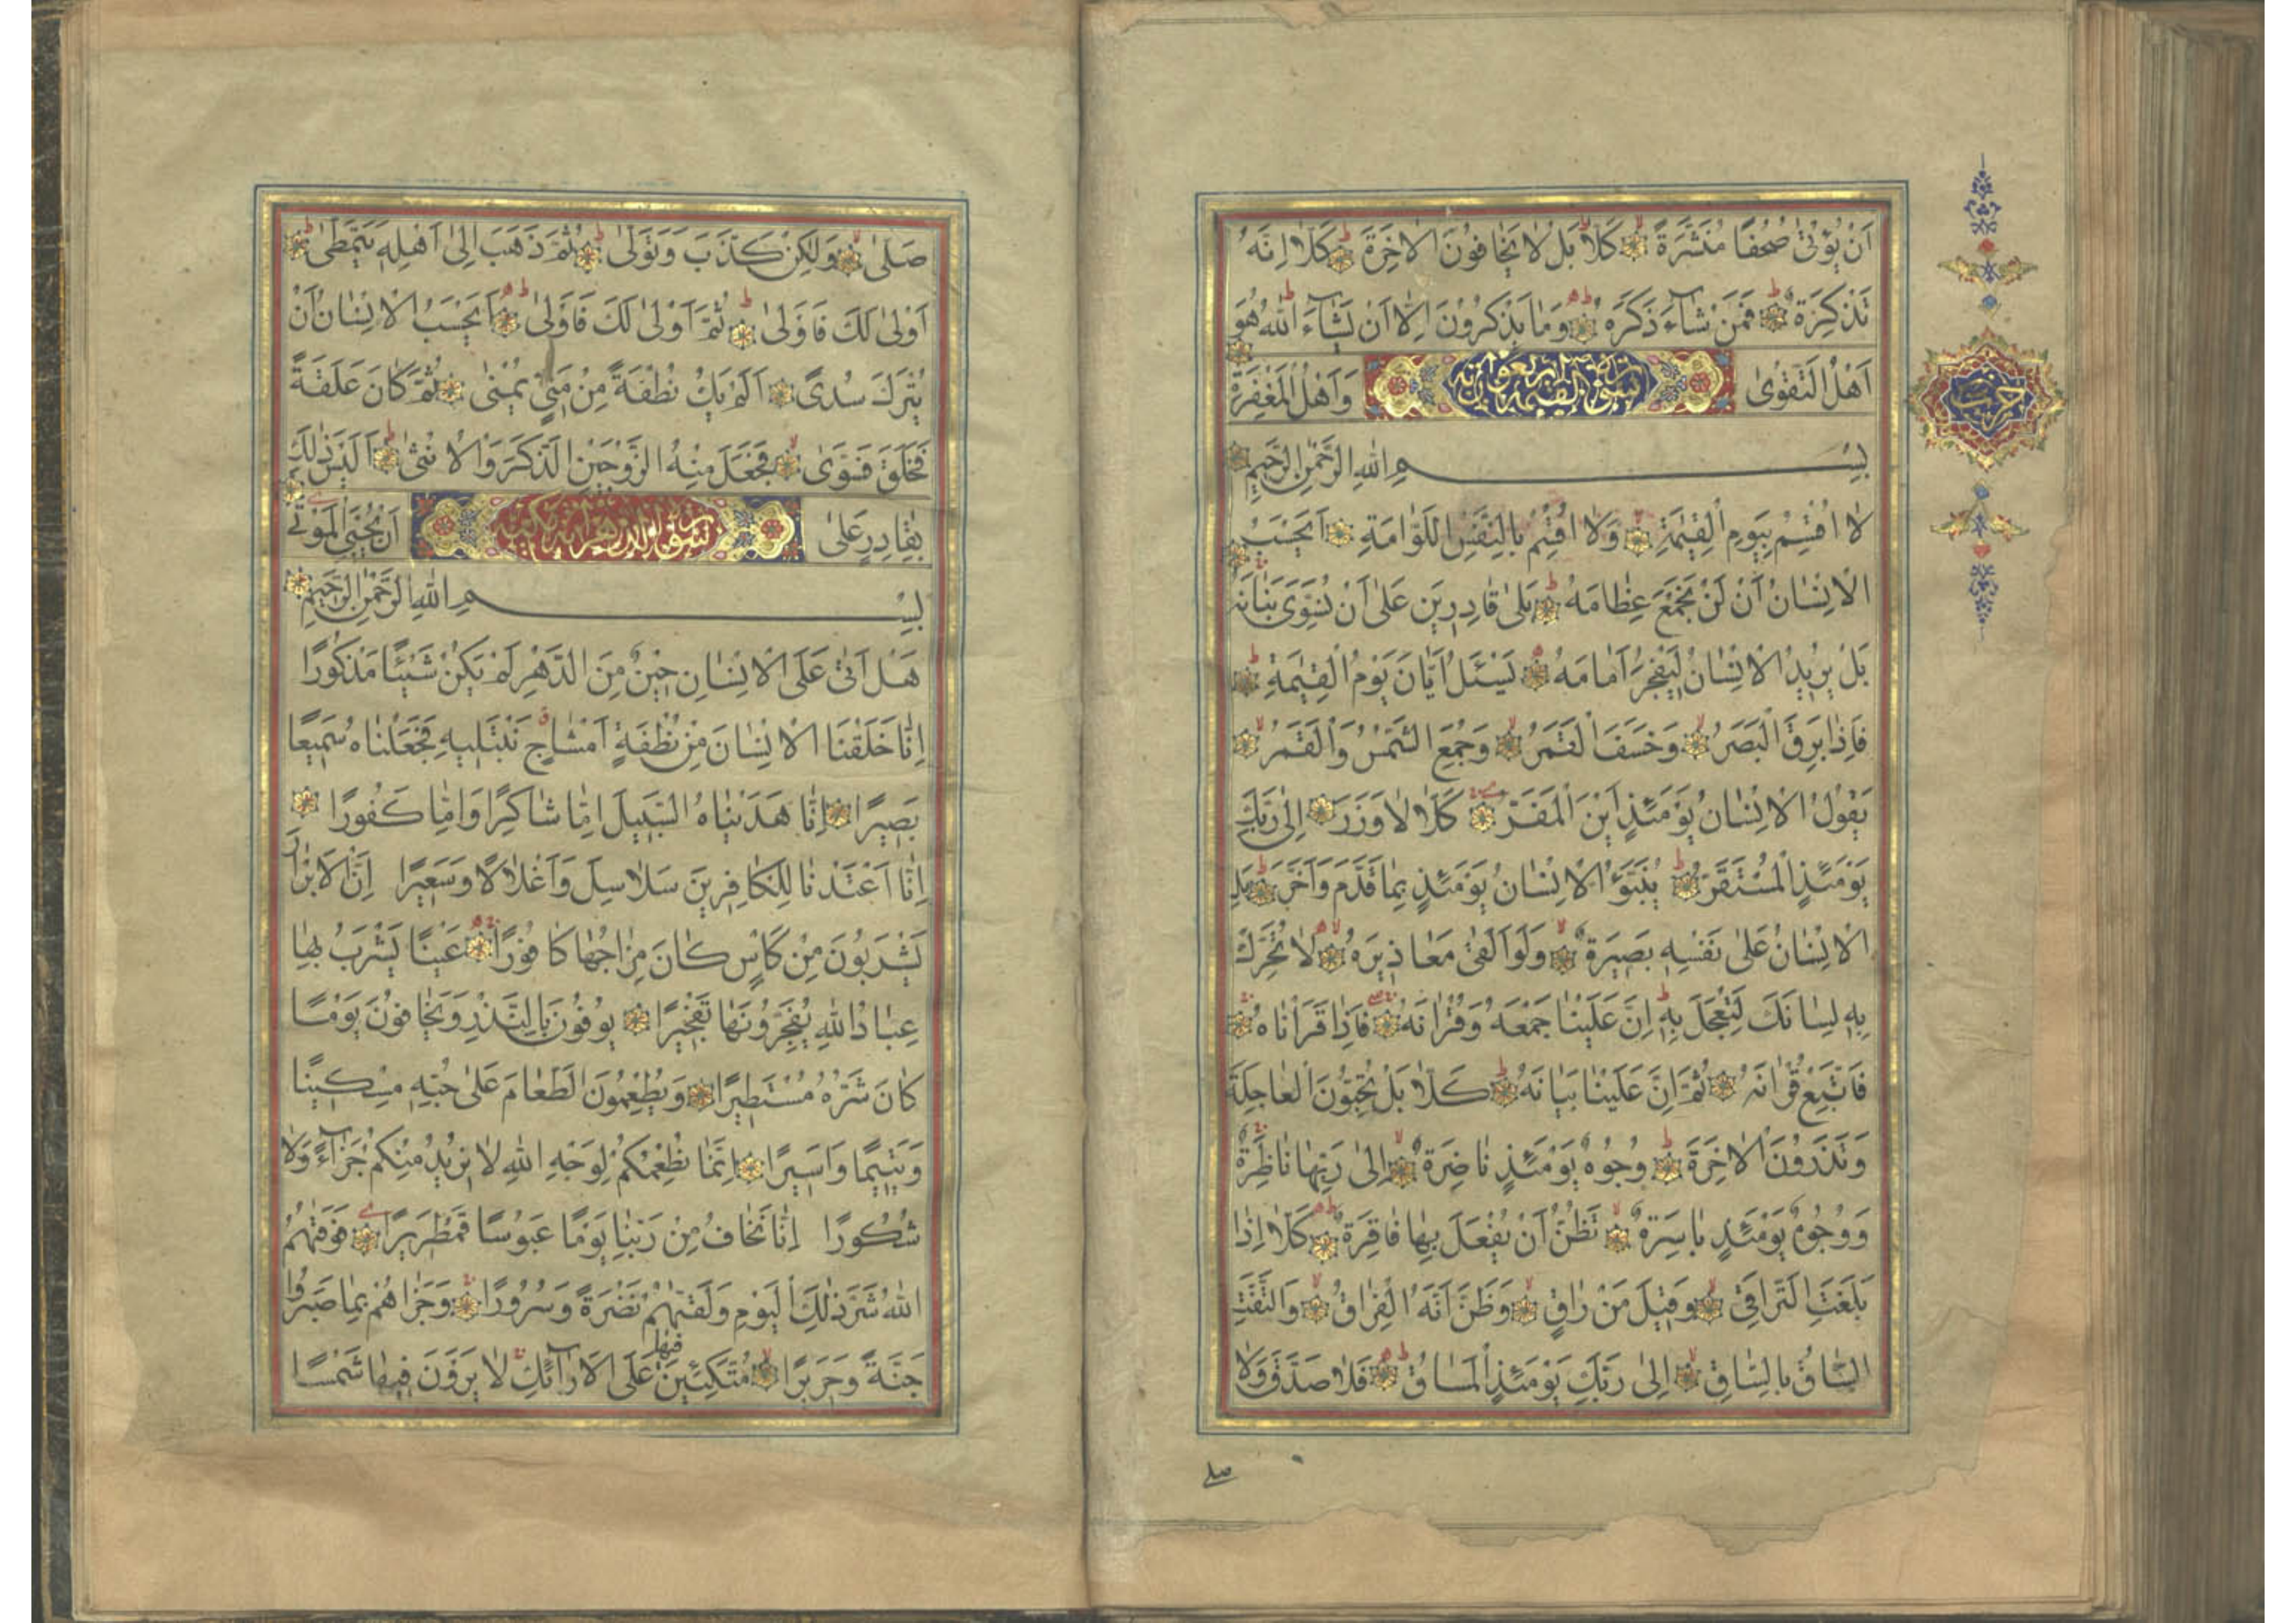 اَنْ يُؤْتٰى صُحُفًا مُنَشَّرَةً كَلَّا بَلْ لَا يَخَافُونَ الْاٰخِرَةَ كَلَّا اِنَّهُ
تَذْكِرَةٌ فَمَنْ شَاءَ ذَكَرَهُ وَمَا يَذْكُرُونَ اِلَّا اَنْ يَشَاءَ اللّٰهُ هُوَ
اَهْلُ التَّقْوٰى وَاَهْلُ الْمَغْفِرَةِ
سورة القيمة اربعون اية
حزب
بِسْمِ اللّٰهِ الرَّحْمٰنِ الرَّحِيمِ
لَا اُقْسِمُ بِيَوْمِ الْقِيٰمَةِ وَلَا اُقْسِمُ بِالنَّفْسِ اللَّوَّامَةِ اَيَحْسَبُ
الْاِنْسَانُ اَنْ لَنْ نَجْمَعَ عِظَامَهُ بَلٰى قَادِرِينَ عَلٰى اَنْ نُسَوِّىَ بَنَانَهُ
بَلْ يُرِيدُ الْاِنْسَانُ لِيَفْجُرَ اَمَامَهُ يَسْئَلُ اَيَّانَ يَوْمُ الْقِيٰمَةِ
فَاِذَا بَرِقَ الْبَصَرُ وَخَسَفَ الْقَمَرُ وَجُمِعَ الشَّمْسُ وَالْقَمَرُ
يَقُولُ الْاِنْسَانُ يَوْمَئِذٍ اَيْنَ الْمَفَرُّ كَلَّا لَا وَزَرَ اِلٰى رَبِّكَ
يَوْمَئِذٍ الْمُسْتَقَرُّ يُنَبَّؤُ الْاِنْسَانُ يَوْمَئِذٍ بِمَا قَدَّمَ وَاَخَّرَ بَلِ
الْاِنْسَانُ عَلٰى نَفْسِهِ بَصِيرَةٌ وَلَوْ اَلْقٰى مَعَاذِيرَهُ لَا تُحَرِّكْ
بِهِ لِسَانَكَ لِتَعْجَلَ بِهِ اِنَّ عَلَيْنَا جَمْعَهُ وَقُرْاٰنَهُ فَاِذَا قَرَاْنَاهُ
فَاتَّبِعْ قُرْاٰنَهُ ثُمَّ اِنَّ عَلَيْنَا بَيَانَهُ كَلَّا بَلْ تُحِبُّونَ الْعَاجِلَةَ
وَتَذَرُونَ الْاٰخِرَةَ وُجُوهٌ يَوْمَئِذٍ نَاضِرَةٌ اِلٰى رَبِّهَا نَاظِرَةٌ
وَوُجُوهٌ يَوْمَئِذٍ بَاسِرَةٌ تَظُنُّ اَنْ يُفْعَلَ بِهَا فَاقِرَةٌ كَلَّا اِذَا
بَلَغَتِ التَّرَاقِىَ وَقِيلَ مَنْ رَاقٍ وَظَنَّ اَنَّهُ الْفِرَاقُ وَالْتَفَّتِ
السَّاقُ بِالسَّاقِ اِلٰى رَبِّكَ يَوْمَئِذٍ الْمَسَاقُ فَلَا صَدَّقَ وَلَا
صلى
صَلّٰى وَلٰكِنْ كَذَّبَ وَتَوَلّٰى ثُمَّ ذَهَبَ اِلٰى اَهْلِهِ يَتَمَطّٰى
اَوْلٰى لَكَ فَاَوْلٰى ثُمَّ اَوْلٰى لَكَ فَاَوْلٰى اَيَحْسَبُ الْاِنْسَانُ اَنْ
يُتْرَكَ سُدًى اَلَمْ يَكُ نُطْفَةً مِنْ مَنِىٍّ يُمْنٰى ثُمَّ كَانَ عَلَقَةً
فَخَلَقَ فَسَوّٰى فَجَعَلَ مِنْهُ الزَّوْجَيْنِ الذَّكَرَ وَالْاُنْثٰى اَلَيْسَ ذٰلِكَ
بِقَادِرٍ عَلٰى اَنْ يُحْيِىَ الْمَوْتٰى
بِسْمِ اللّٰهِ الرَّحْمٰنِ الرَّحِيمِ
هَلْ اَتٰى عَلَى الْاِنْسَانِ حِينٌ مِنَ الدَّهْرِ لَمْ يَكُنْ شَيْئًا مَذْكُورًا
اِنَّا خَلَقْنَا الْاِنْسَانَ مِنْ نُطْفَةٍ اَمْشَاجٍ نَبْتَلِيهِ فَجَعَلْنَاهُ سَمِيعًا
بَصِيرًا اِنَّا هَدَيْنَاهُ السَّبِيلَ اِمَّا شَاكِرًا وَاِمَّا كَفُورًا
اِنَّا اَعْتَدْنَا لِلْكَافِرِينَ سَلَاسِلَ وَاَغْلَالًا وَسَعِيرًا اِنَّ الْاَبْرَارَ
يَشْرَبُونَ مِنْ كَاْسٍ كَانَ مِزَاجُهَا كَافُورًا عَيْنًا يَشْرَبُ بِهَا
عِبَادُ اللّٰهِ يُفَجِّرُونَهَا تَفْجِيرًا يُوفُونَ بِالنَّذْرِ وَيَخَافُونَ يَوْمًا
كَانَ شَرُّهُ مُسْتَطِيرًا وَيُطْعِمُونَ الطَّعَامَ عَلٰى حُبِّهِ مِسْكِينًا
وَيَتِيمًا وَاَسِيرًا اِنَّمَا نُطْعِمُكُمْ لِوَجْهِ اللّٰهِ لَا نُرِيدُ مِنْكُمْ جَزَاءً وَلَا
شُكُورًا اِنَّا نَخَافُ مِنْ رَبِّنَا يَوْمًا عَبُوسًا قَمْطَرِيرًا فَوَقٰيهُمُ
اللّٰهُ شَرَّ ذٰلِكَ الْيَوْمِ وَلَقّٰيهُمْ نَضْرَةً وَسُرُورًا وَجَزَاهُمْ بِمَا صَبَرُوا
جَنَّةً وَحَرِيرًا مُتَّكِئِينَ فِيهَا عَلَى الْاَرَائِكِ لَا يَرَوْنَ فِيهَا شَمْسًا